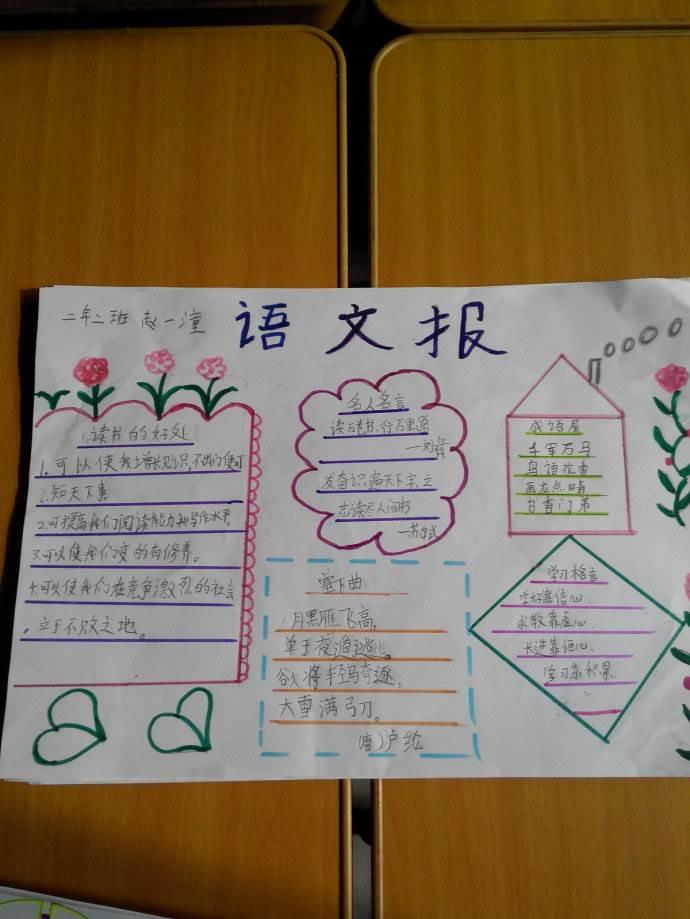 二年二班 赵一潼
语文报
读书的好处
1.可以使我们增长见识,不出门便可
知天下事
2.可提高我们阅读能力和写作水平,
3.可以使我们变的有修养。
4.可以使我们在竞争激烈的社会
,立于不败之地。
名人名言
读万卷书,行万里路
—刘彝
发奋识遍天下字,立
志读尽人间书
—苏轼
塞下曲
月黑雁飞高,
单于夜遁逃。
欲将轻骑逐,
大雪满弓刀。
(唐)卢纶
成语屋
千军万马
鸟语花香
画龙点睛
书香门弟
学习格言
学好靠信心、
求教靠虚心、
长进靠恒心、
学习靠积累、